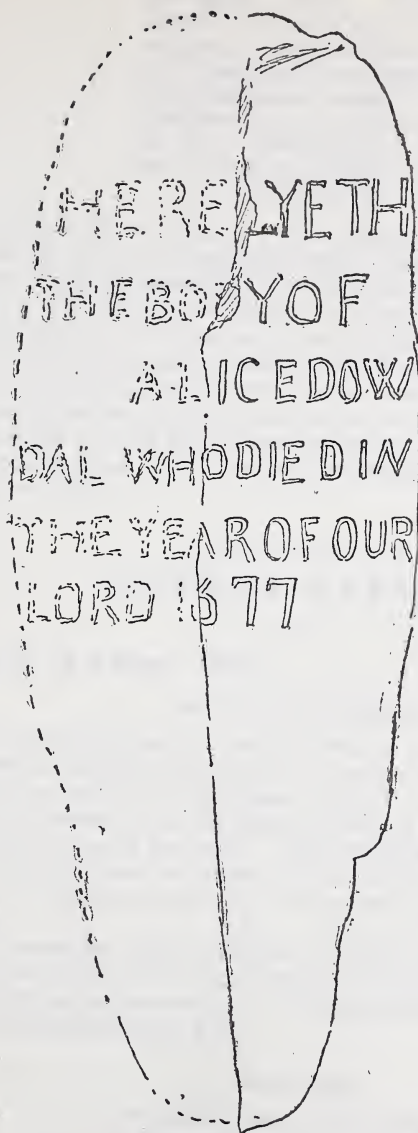 HERE LYETH
THE BODY OF
ALICE DOW
DAL WHO DIED IN
THE YEAR OF OUR
LORD 1677